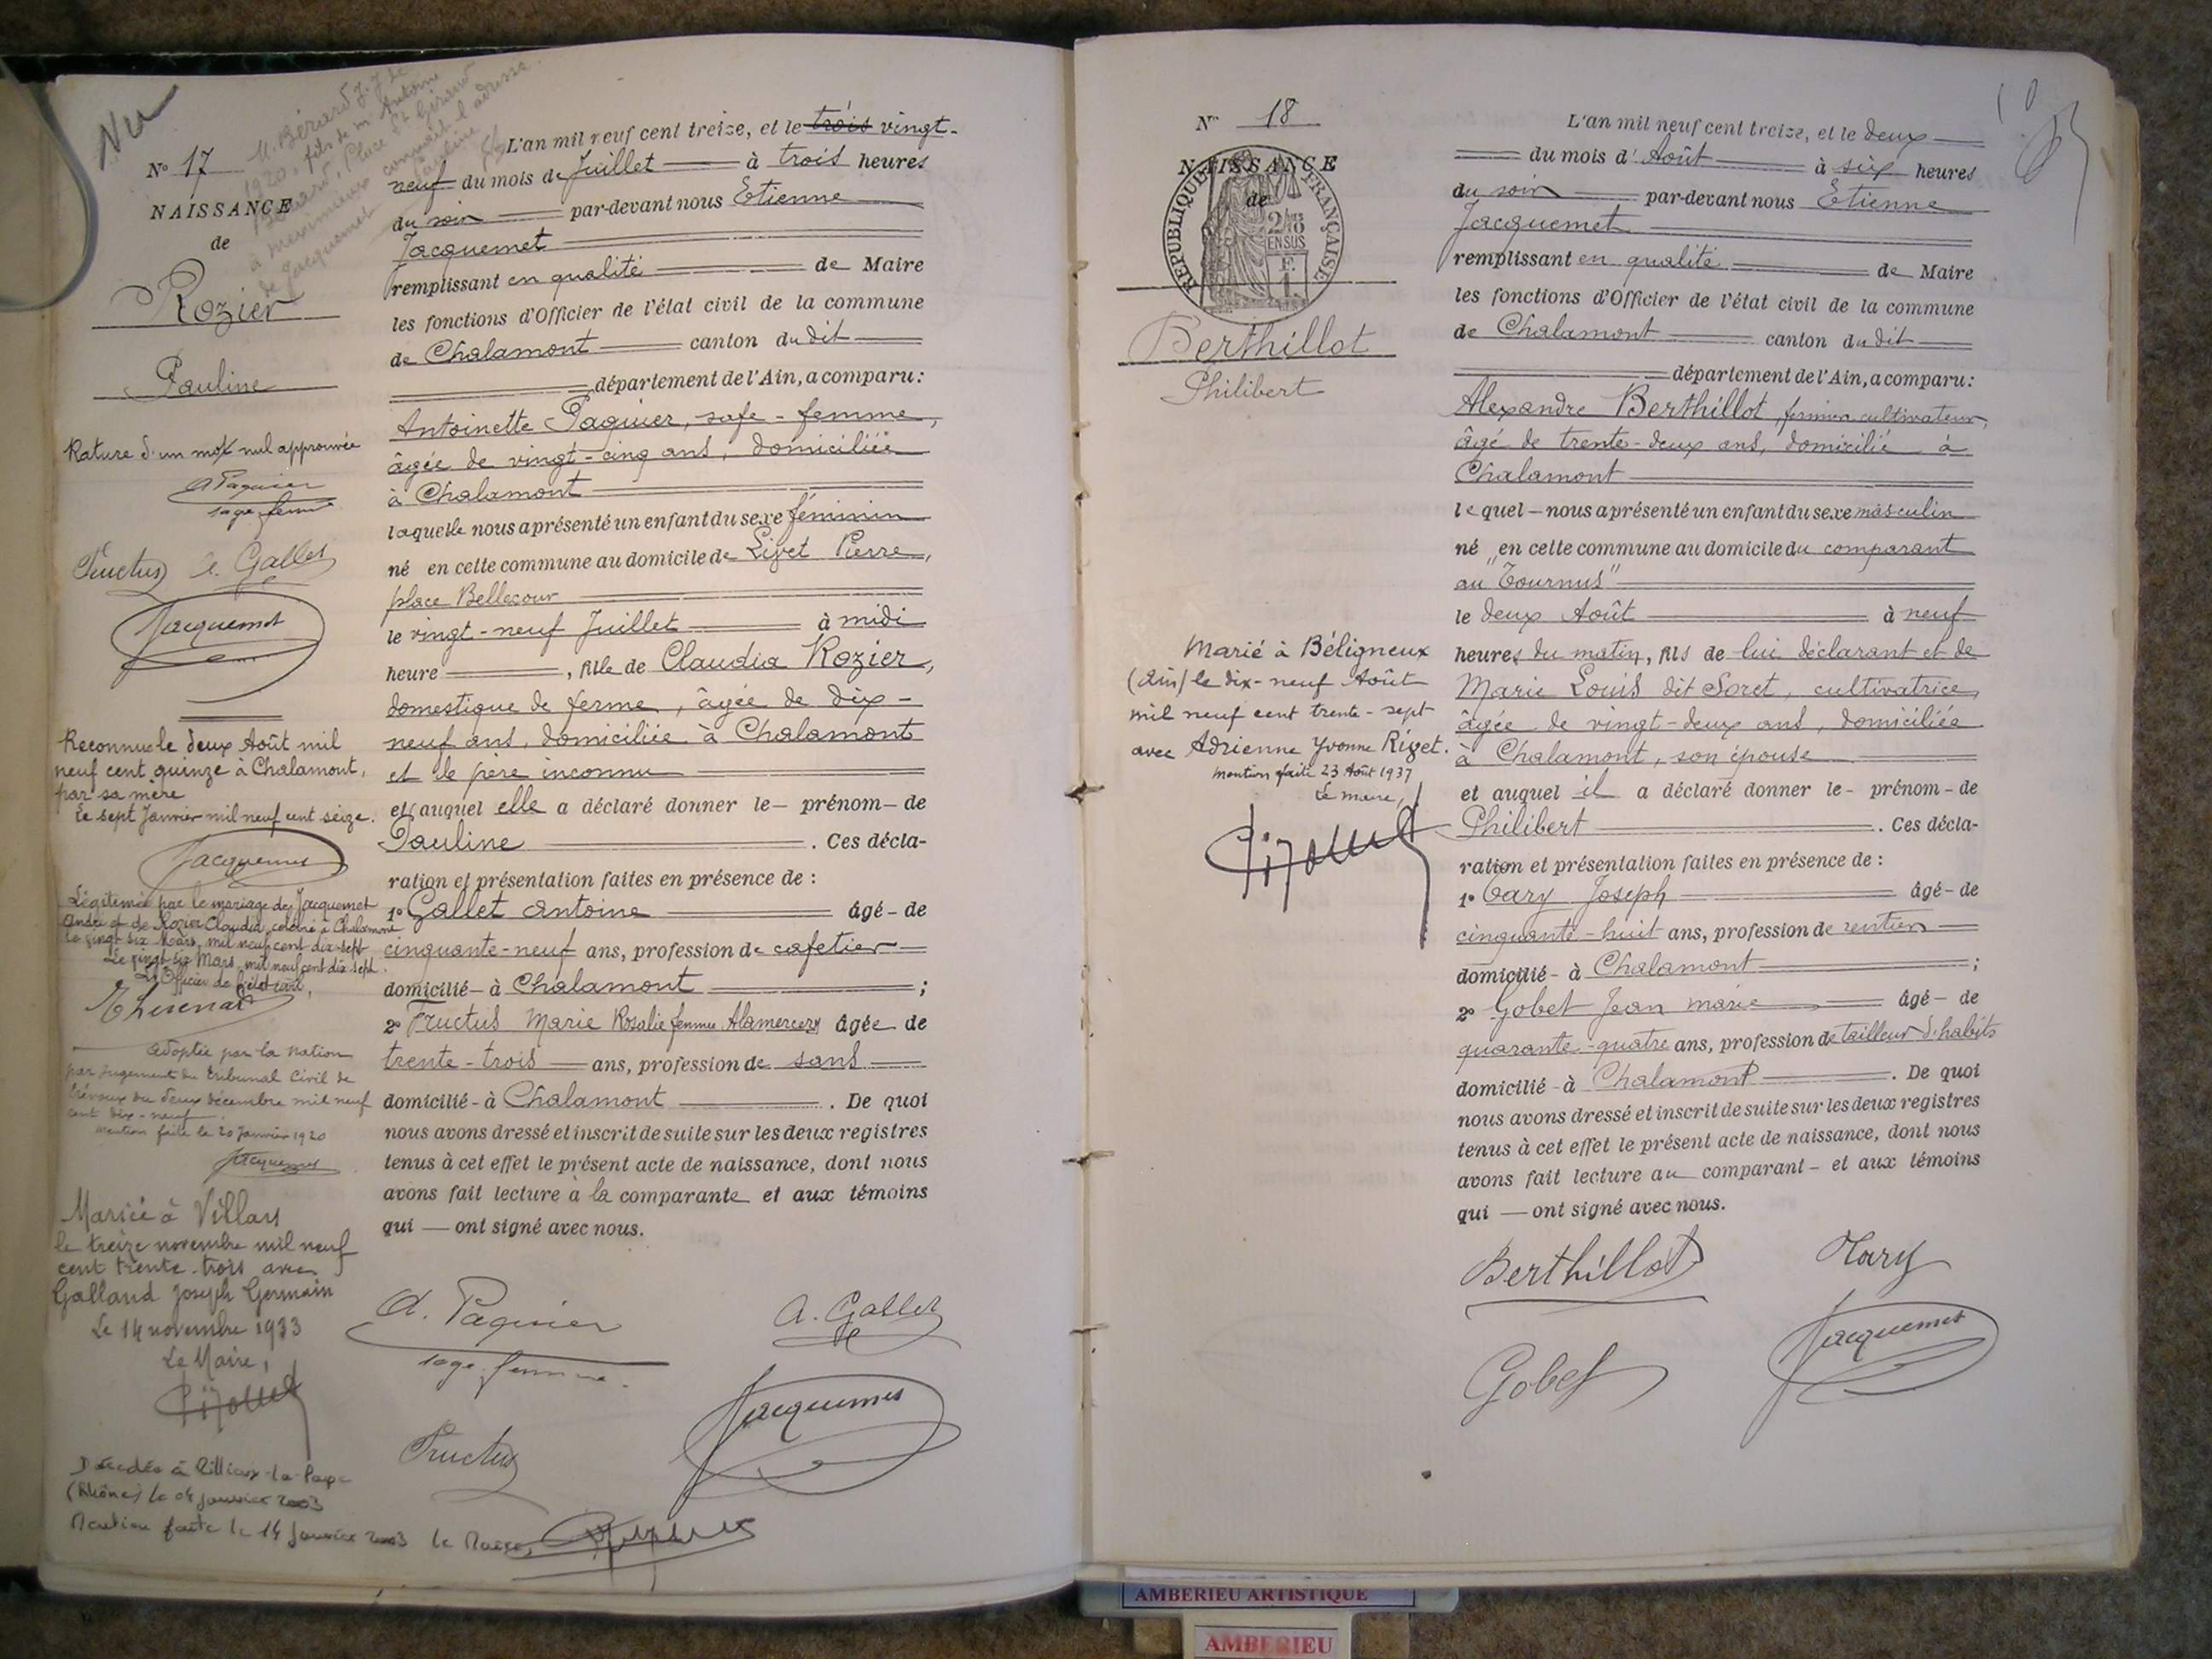 Nu
M. Bérard J. J. de
1920, fils de m. Antoine
Bérard, Place St Gérard
à connait l'adresse
de Jacquemet
N° 17
NAISSANCE
de
Rozier
Pauline
Rature d'un mot nul approuvée
A Paquier
sage-femme
Fructus A. Gallet
Jacquemet
Reconnue le deux Août mil
neuf cent quinze à Chalamont,
par sa mère
Le sept Janvier mil neuf cent seize.
Jacquemet
Légitimée par le mariage de Jacquemet
André et de Rozier Claudia, célébré à Chalamont
le vingt six Mars mil neuf cent dix-sept
Le vingt six Mars mil neuf cent dix sept.
L'Officier de l'état civil,
Adoptée par la Nation
par jugement du Tribunal Civil de
Trévoux du deux décembre mil neuf
cent dix-neuf.
Mention faite le 20 Janvier 1920
Jacquemet
Mariée à Villars
le treize novembre mil neuf
cent trente-trois avec
Galland Joseph Germain
Le 14 novembre 1933
Le Maire,
Décédée à Rillieux-la-Pape
(Rhône) le 04 janvier 2003
Mention faite le 14 Janvier 2003 le Maire,
L'an mil neuf cent treize, et le trois vingt-
neuf du mois de Juillet à trois heures
du soir par-devant nous Etienne
Jacquemet
remplissant en qualité de Maire
les fonctions d'Officier de l'état civil de la commune
de Chalamont canton du dit
département de l'Ain, a comparu:
Antoinette Paquier, safe-femme,
âgée de vingt-cinq ans, domiciliée
à Chalamont
laquelle nous a présenté un enfant du sexe féminin
né en cette commune au domicile de Livet Pierre,
place Bellecour
le vingt-neuf Juillet à midi
heure , fille de Claudia Rozier,
domestique de ferme, âgée de dix-
neuf ans, domiciliée à Chalamont
et de père inconnu
et auquel elle a déclaré donner le - prénom - de
Pauline . Ces décla-
ration et présentation faites en présence de :
1° Gallet Antoine âgé - de
cinquante-neuf ans, profession de cafetier
domicilié - à Chalamont ;
2° Fructus Marie Rosalie femme Alamercery âgée de
trente-trois ans, profession de sans
domicilié - à Chalamont . De quoi
nous avons dressé et inscrit de suite sur les deux registres
tenus à cet effet le présent acte de naissance, dont nous
avons fait lecture à la comparante et aux témoins
qui — ont signé avec nous.
A. Paquier
sage-femme.
A. Gallet
Fructus
Jacquemet
N° 18
NAISSANCE
de
REPUBLIQUE FRANÇAISE
2/10
EN SUS
Berthillot
Philibert
Marié à Béligneux
(Ain) le dix-neuf Août
mil neuf cent trente-sept
avec Adrienne Yvonne Rizet.
mention faite 23 Août 1937
Le maire,
L'an mil neuf cent treize, et le deux
du mois d'Août à six heures
du soir par-devant nous Etienne
Jacquemet
remplissant en qualité de Maire
les fonctions d'Officier de l'état civil de la commune
de Chalamont canton du dit
département de l'Ain, a comparu:
Alexandre Berthillot, fermier cultivateur,
âgé de trente-deux ans, domicilié à
Chalamont
lequel - nous a présenté un enfant du sexe masculin
né en cette commune au domicile du comparant
au "Tournus"
le deux Août à neuf
heures du matin, fils de lui déclarant et de
Marie Louis dit Soret, cultivatrice,
âgée de vingt-deux ans, domiciliée
à Chalamont, son épouse
et auquel il a déclaré donner le - prénom - de
Philibert . Ces décla-
ration et présentation faites en présence de :
1° Joseph âgé - de
cinquante-huit ans, profession de rentier
domicilié - à Chalamont ;
2° Gobet Jean Marie âgé - de
quarante-quatre ans, profession de tailleur d'habits
domicilié - à Chalamont . De quoi
nous avons dressé et inscrit de suite sur les deux registres
tenus à cet effet le présent acte de naissance, dont nous
avons fait lecture au comparant - et aux témoins
qui — ont signé avec nous.
Berthillot
Gobet
Jacquemet
AMBERIEU ARTISTIQUE
AMBERIEU